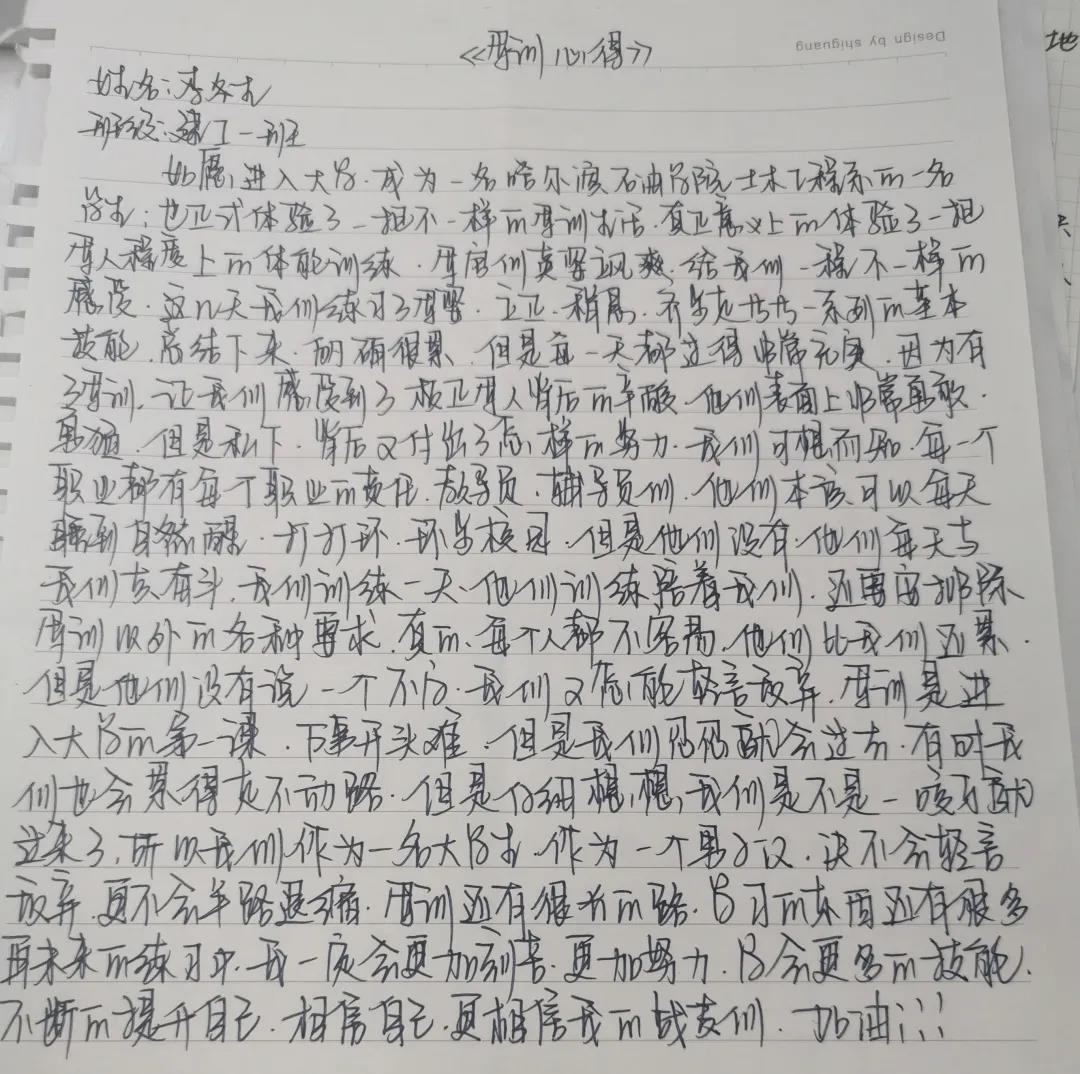 Design by shiguang
《军训心得》
姓名:李冬生
班级:建工一班
如愿进入大学.成为一名哈尔滨石油学院土木工程系的一名
学生;也正式体验了一把不一样的军训生活.真正意义上的体验了一把
军人程度上的体能训练.军官们英姿飒爽.给我们一种不一样的
感受.这几天我们练习了军姿.立正.稍息.齐步走等等一系列的基本
技能.总结下来.的确很累.但是每一天都过得非常充实.因为有
了军训.让我们感受到了校正军人背后的辛酸.他们表面上非常勇敢.
勇猛.但是私下.背后又付出了怎样的努力.我们可想而知.每一个
职业都有每个职业的责任.教导员.辅导员们.他们本该可以每天
睡到自然醒.打打环.环步校园.但是他们没有.他们每天与
我们共奋斗.我们训练一天.他们训练陪着我们.还要安排除
军训以外的各种要求.真的.每个人都不容易.他们比我们还累.
但是他们没有说一个不字.我们又怎能轻言放弃.军训是进
入大学的第一课.万事开头难.但是我们仍仍都会过去.有时我
们也会累得走不动路.但是仔细想想,我们是不是一咬牙都
过来了,所以我们作为一名大学生.作为一个男子汉.决不会轻言
放弃.更不会半路退缩.军训还有很长的路.学习的东西还有很多
再未来的练习中.我一定会更加刻苦.更加努力.学会更多的技能.
不断的提升自己.相信自己.更相信我的战友们.加油!!!
地